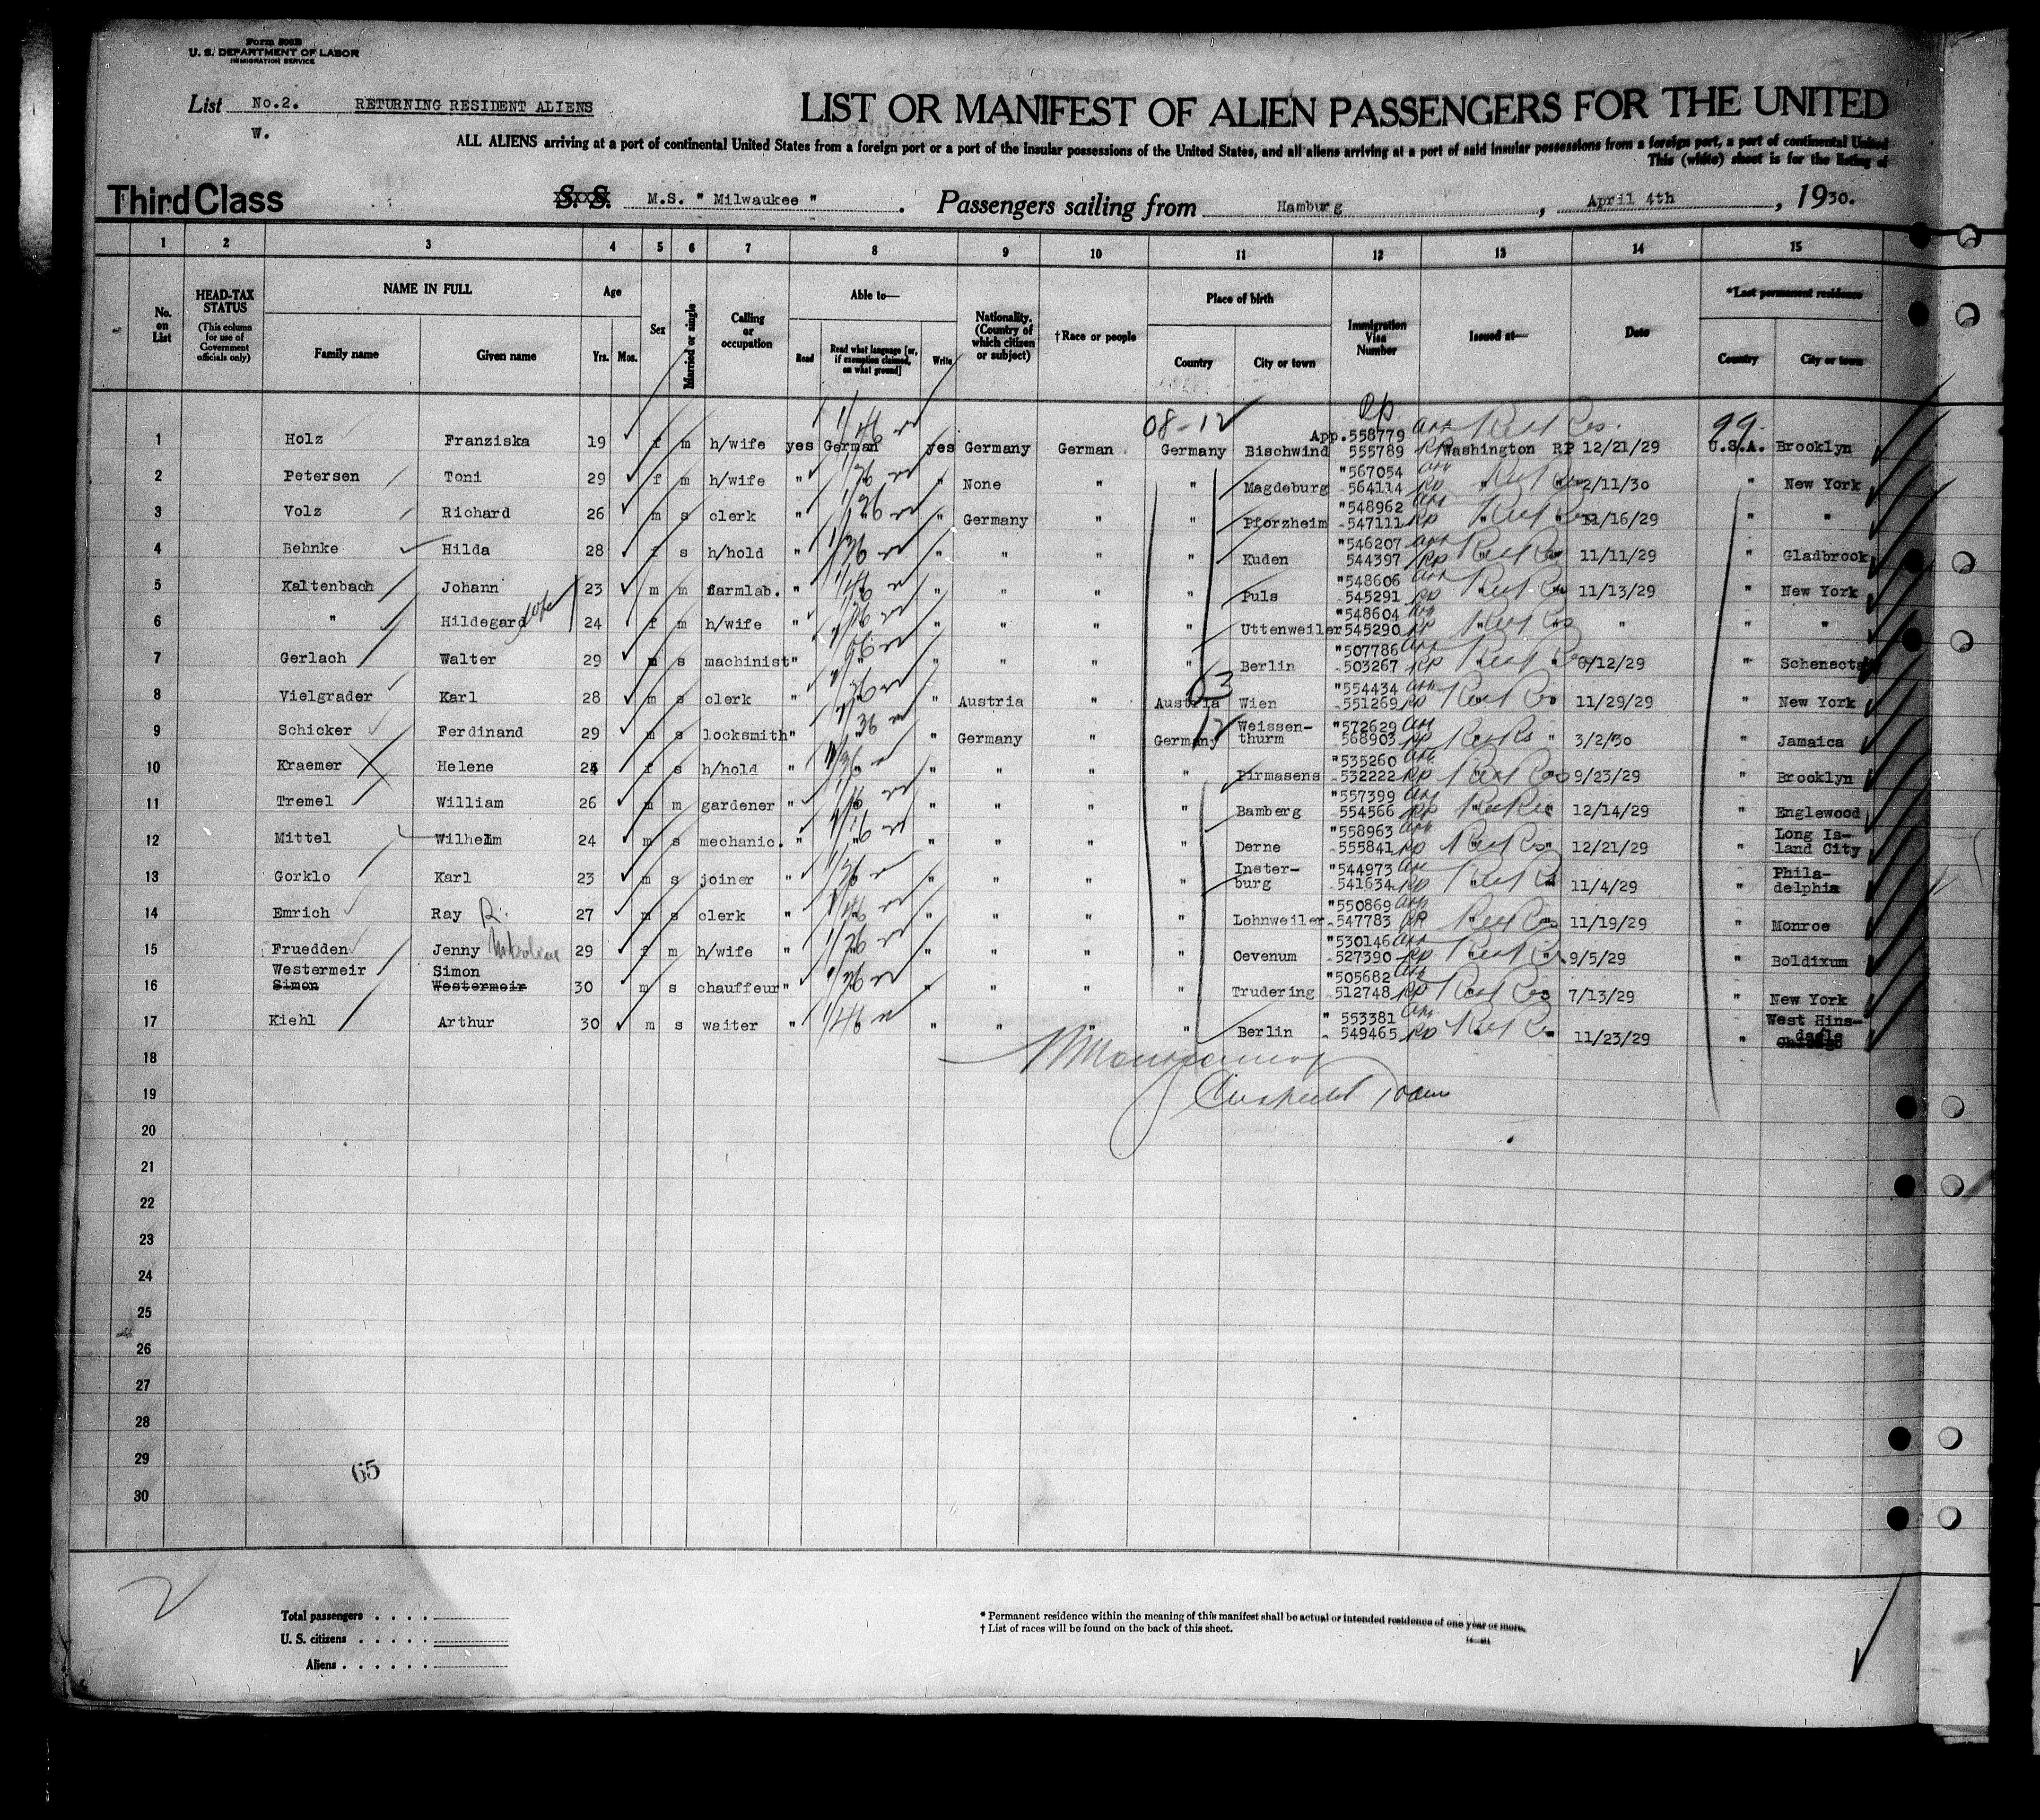 Form 500B
U. S. DEPARTMENT OF LABOR
IMMIGRATION SERVICE
List No.2. RETURNING RESIDENT ALIENS
W.
LIST OR MANIFEST OF ALIEN PASSENGERS FOR THE UNITED
ALL ALIENS arriving at a port of continental United States from a foreign port or a port of the insular possessions of the United States, and all aliens arriving at a port of said insular possessions from a foreign port, a part of continental United
This (white) sheet is for the listing of
Third Class S. S. M.S. " Milwaukee " . Passengers sailing from Hamburg , April 4th , 1930.
1 2 3 4 5 6 7 8 9 10 11 12 13 14 15
No. on List
HEAD-TAX STATUS (This column for use of Government officials only)
NAME IN FULL
Family name Given name
Age
Yrs. Mos.
Sex
Married or single
Calling or occupation
Able to—
Read Read what language [or, if exemption claimed, on what ground] Write
Nationality. (Country of which citizen or subject)
†Race or people
Place of birth
Country City or town
Immigration Visa Number
Issued at—
Date
*Last permanent residence
Country City or town
08-12 99
1 Holz Franziska 19 f m h/wife yes German yes Germany German Germany Bischwind App.558779 555789 Washington RP 12/21/29 U.S.A. Brooklyn
2 Petersen Toni 29 f m h/wife " " None " " Magdeburg "567054 564114 RP " 2/11/30 " New York
3 Volz Richard 26 m s clerk " " " Germany " " Pforzheim "548962 547111 RP " 11/16/29 " "
4 Behnke Hilda 28 f s h/hold " " " " " Kuden "546207 544397 RP 11/11/29 " Gladbrook
5 Kaltenbach Johann 23 m m farmlab. " " " " " Puls "548606 545291 RP 11/13/29 " New York
6 " Hildegard wife 24 f m h/wife " " " " " Uttenweiler "548604 545290 RP " " "
7 Gerlach Walter 29 m s machinist " " " " " Berlin "507786 503267 RP 6/12/29 " Schenecta
8 Vielgrader Karl 28 m s clerk " " Austria " Austria 03 Wien "554434 551269 RP 11/29/29 " New York
9 Schicker Ferdinand 29 m s locksmith " " " Germany " Germany 12 Weissen-thurm "572629 568903 RP " 3/2/30 " Jamaica
10 Kraemer Helene 24 f s h/hold " " " " " Pirmasens "535260 532222 RP 9/23/29 " Brooklyn
11 Tremel William 26 m m gardener " " " " " Bamberg "557399 554566 RP 12/14/29 " Englewood
12 Mittel Wilhelm 24 m s mechanic. " " " " " Derne "558963 555841 RP " 12/21/29 " Long Is-land City
13 Gorklo Karl 23 m s joiner " " " " Inster-burg "544973 541634 RP " 11/4/29 " Phila-delphia
14 Emrich Ray R. 27 m s clerk " " " " " Lohnweiler "550869 547783 RP 11/19/29 " Monroe
15 Fruedden Jenny 29 f m h/wife " " " " " Oevenum "530146 527390 RP " 9/5/29 " Boldixum
16 Westermeir Simon Simon Westermeir 30 m s chauffeur " " " " " Trudering "505682 512748 RP 7/13/29 " New York
17 Kiehl Arthur 30 m s waiter " " " " " Berlin " 553381 549465 RP " 11/23/29 " West Hins-dale
18
19
20
21
22
23
24
25
26
27
28
29
30
65
2
Total passengers . . . .
U. S. citizens . . . . .
Aliens . . . . . .
* Permanent residence within the meaning of this manifest shall be actual or intended residence of one year or more.
† List of races will be found on the back of this sheet.